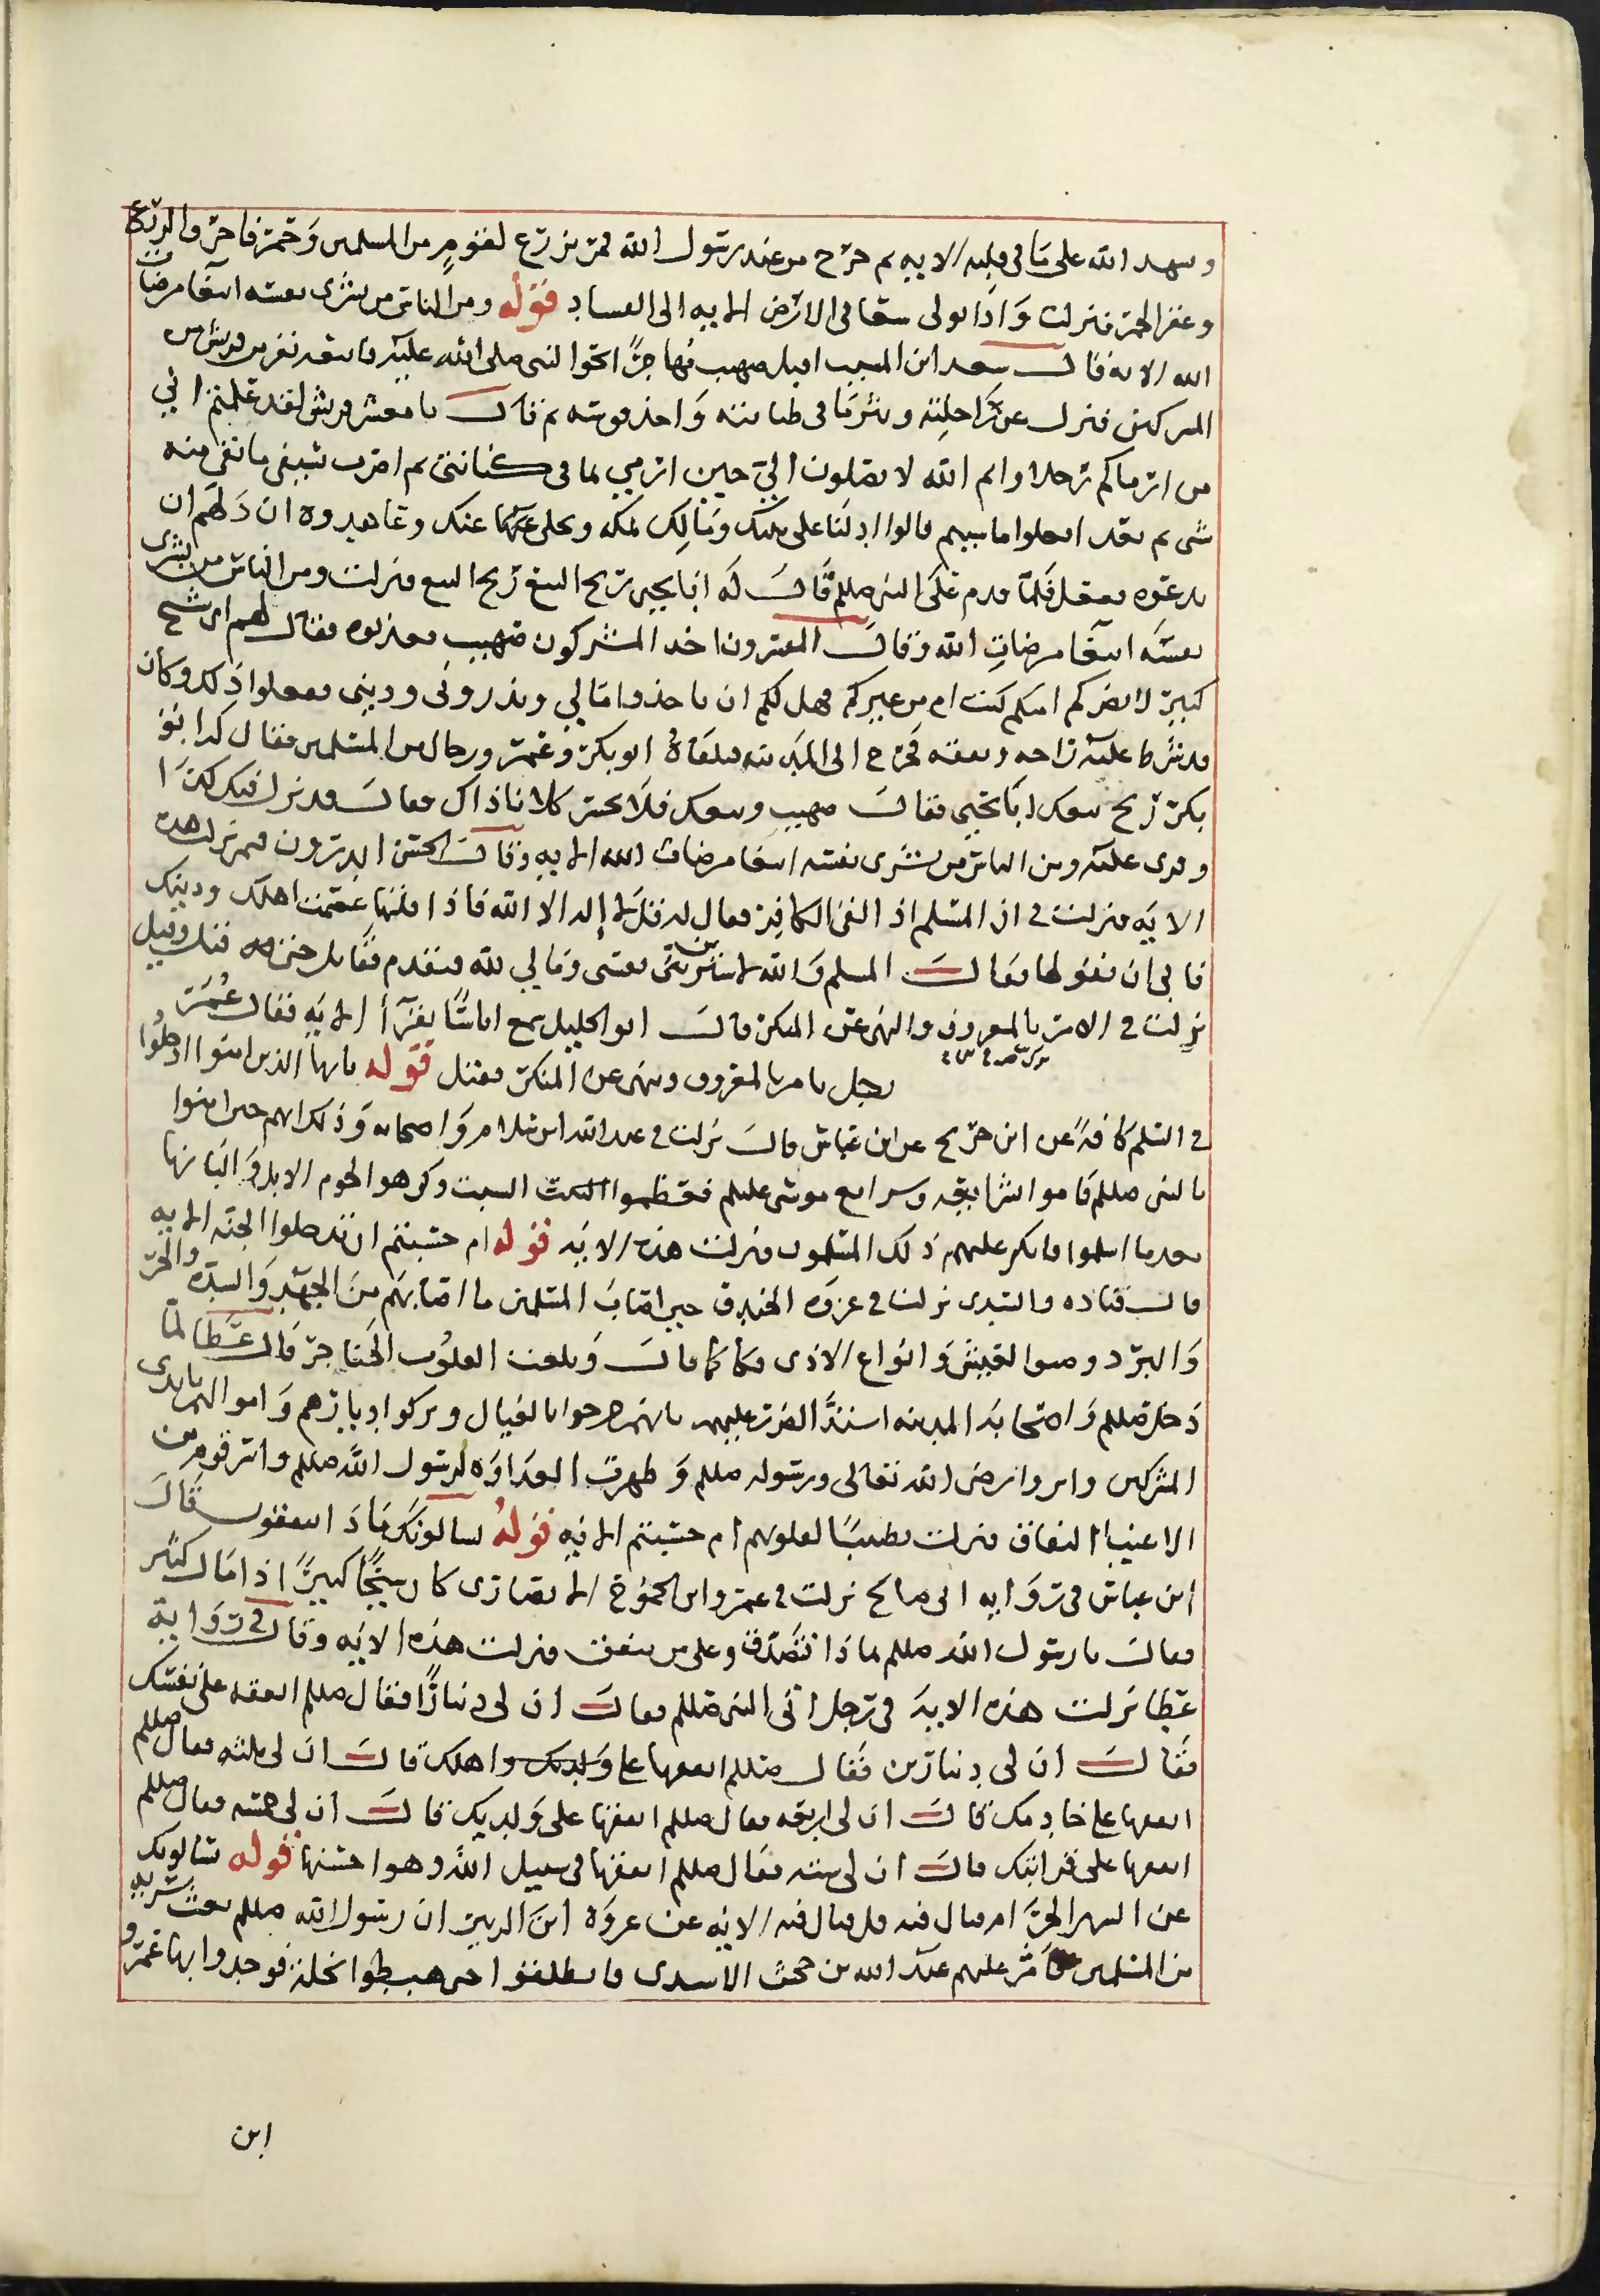 وسهد الله على ما في قلبه الايه ثم خرج من عند رسول الله فمر بزرع لقوم من المسلمين وحمر فاحرق الزرع
وعقر الحمر فنزلت واذا تولى سعا في الارض الايه الى الفساد قوله ومن الناس من يشري نفسه ابتغا مرضات
الله الايه قال سعد ابن المسيب اقبل صهيب مهاجرًا نحو النبي صلى الله عليه فاتبعه نفر من قريش من
المشركين فنزل عن راحلته ونثر ما في كنانته واخذ قوسه ثم قال يا معشر قريش لقد علمتم اني
من ارماكم رجلا وايم الله لا تصلون الي حين ارمي بما في كنانتي ثم اضرب بسيفي ما بقي منه
شي ثم بعد افعلوا ما شيتم قالوا ادلنا على بيتك ومالك بمكه ونخلى عنك وعاهدوه ان دلهم ان
يدعوه ففعل فلما قدم على النبي صللم قال له ابا يحيى ربح البيع ربح البيع فنزلت ومن الناس من يشرى
نفسه ابتغا مرضات الله وقال المفسرون اخذ المشركون صهيب فعذبوه فقال لهم اني شيخ
كبير لا يضركم امنكم كنت ام من غيركم فهل لكم ان تاخذوا مالي وتذروني وديني ففعلوا ذلك وكان
قد شرط عليه راحله ونفقه فخرج الى المدينه فتلقاه ابو بكر وعمر ورجال من المسلمين فقال له ابو
بكر ربح بيعك ابا يحيى فقال صهيب وبيعك فلا تخسر كلانا ذاك فقال قد نزل فيك كذا
وقرى عليه ومن الناس من يشرى نفسه ابتغا مرضات الله الايه وقال الحسن اتدرون فيمن نزلت هذه
الايه نزلت في ان المسلم اذ القى الكافر فقال له قل لا إله الا الله فاذا قلتها عصمت اهلك ودينك
فابى ان يقولها فقال المسلم والله لاشترين نفسي ومالي لله فتقدم فقاتل حتى قتل وقيل
نزلت في الامر بالمعروف والنهي عن المنكر قال ابو الخليل سمع انسانًا يقرأ الايه فقال عمر
رجل يامر بالمعروف وينهى عن المنكر فقتل قوله يايها الذين امنوا ادخلوا
في السلم كافة عن ابن جريح عن ابن عباس قال نزلت في عبد الله ابن سلام واصحابه وذلك انهم حين امنوا
بالنبي صللم قاموا بشرايعه وشرايع موسى عليلم فعظموا السبت وكرهوا لحوم الابل والبانها
بعد ما اسلموا فانكر عليهم ذلك المسلمون فنزلت هذه الايه قوله ام حسبتم ان تدخلوا الجنه الايه
قال قتاده والسدى نزلت في غزوه الخندق حين اصاب المسلمين ما اصابهم من الجهد والشده والحر
والبرد وضيق العيش وانواع الاذى فكان كما قال وبلغت القلوب الحناجر قال عطا لما
دخل صللم واصحابه المدينه اشتد الضر عليهم بانهم خرجوا بلا مال وتركوا ديارهم واموالهم بايدي
المشركين واثروا رضى الله تعالى ورسوله صللم وظهرت العداوه لرسول الله صللم واسر قوم من
الاغنيا النفاق فنزلت تطييبًا لقلوبهم ام حسبتم الايه قوله يسالونك ماذا ينفقون قال
ابن عباس في روايه ابي صالح نزلت في عمرو ابن الجموح الانصاري كان شيخًا كبيرًا ذا مال كثير
فقال يا رسول الله صللم بماذا نتصدق وعلى من ننفق فنزلت هذه الايه وقال في رواية
عطا نزلت هذه الايه في رجل اتى النبي صللم فقال ان لي دينارًا فقال صللم انفقه على نفسك
فقال ان لي دينارين فقال صللم انفقها على اهلك قال ان لي ثلثه فقال صللم
انفقها على خادمك قال ان لي اربعه فقال صللم انفقها على ولديك قال ان لي خمسه فقال صللم
انفقها على قرابتك قال ان لي سته فقال صللم انفقها في سبيل الله وهوا حسنها قوله يسالونك
عن الشهر الحرام قتال فيه قل قتال فيه الايه عن عروه ابن الزبير ان رسول الله صللم بعث سريه
من المسلمين وامر عليهم عبد الله بن جحش الاسدى فانطلقوا حتى هبطوا نخلة فوجدوا بها عمرو
ابن